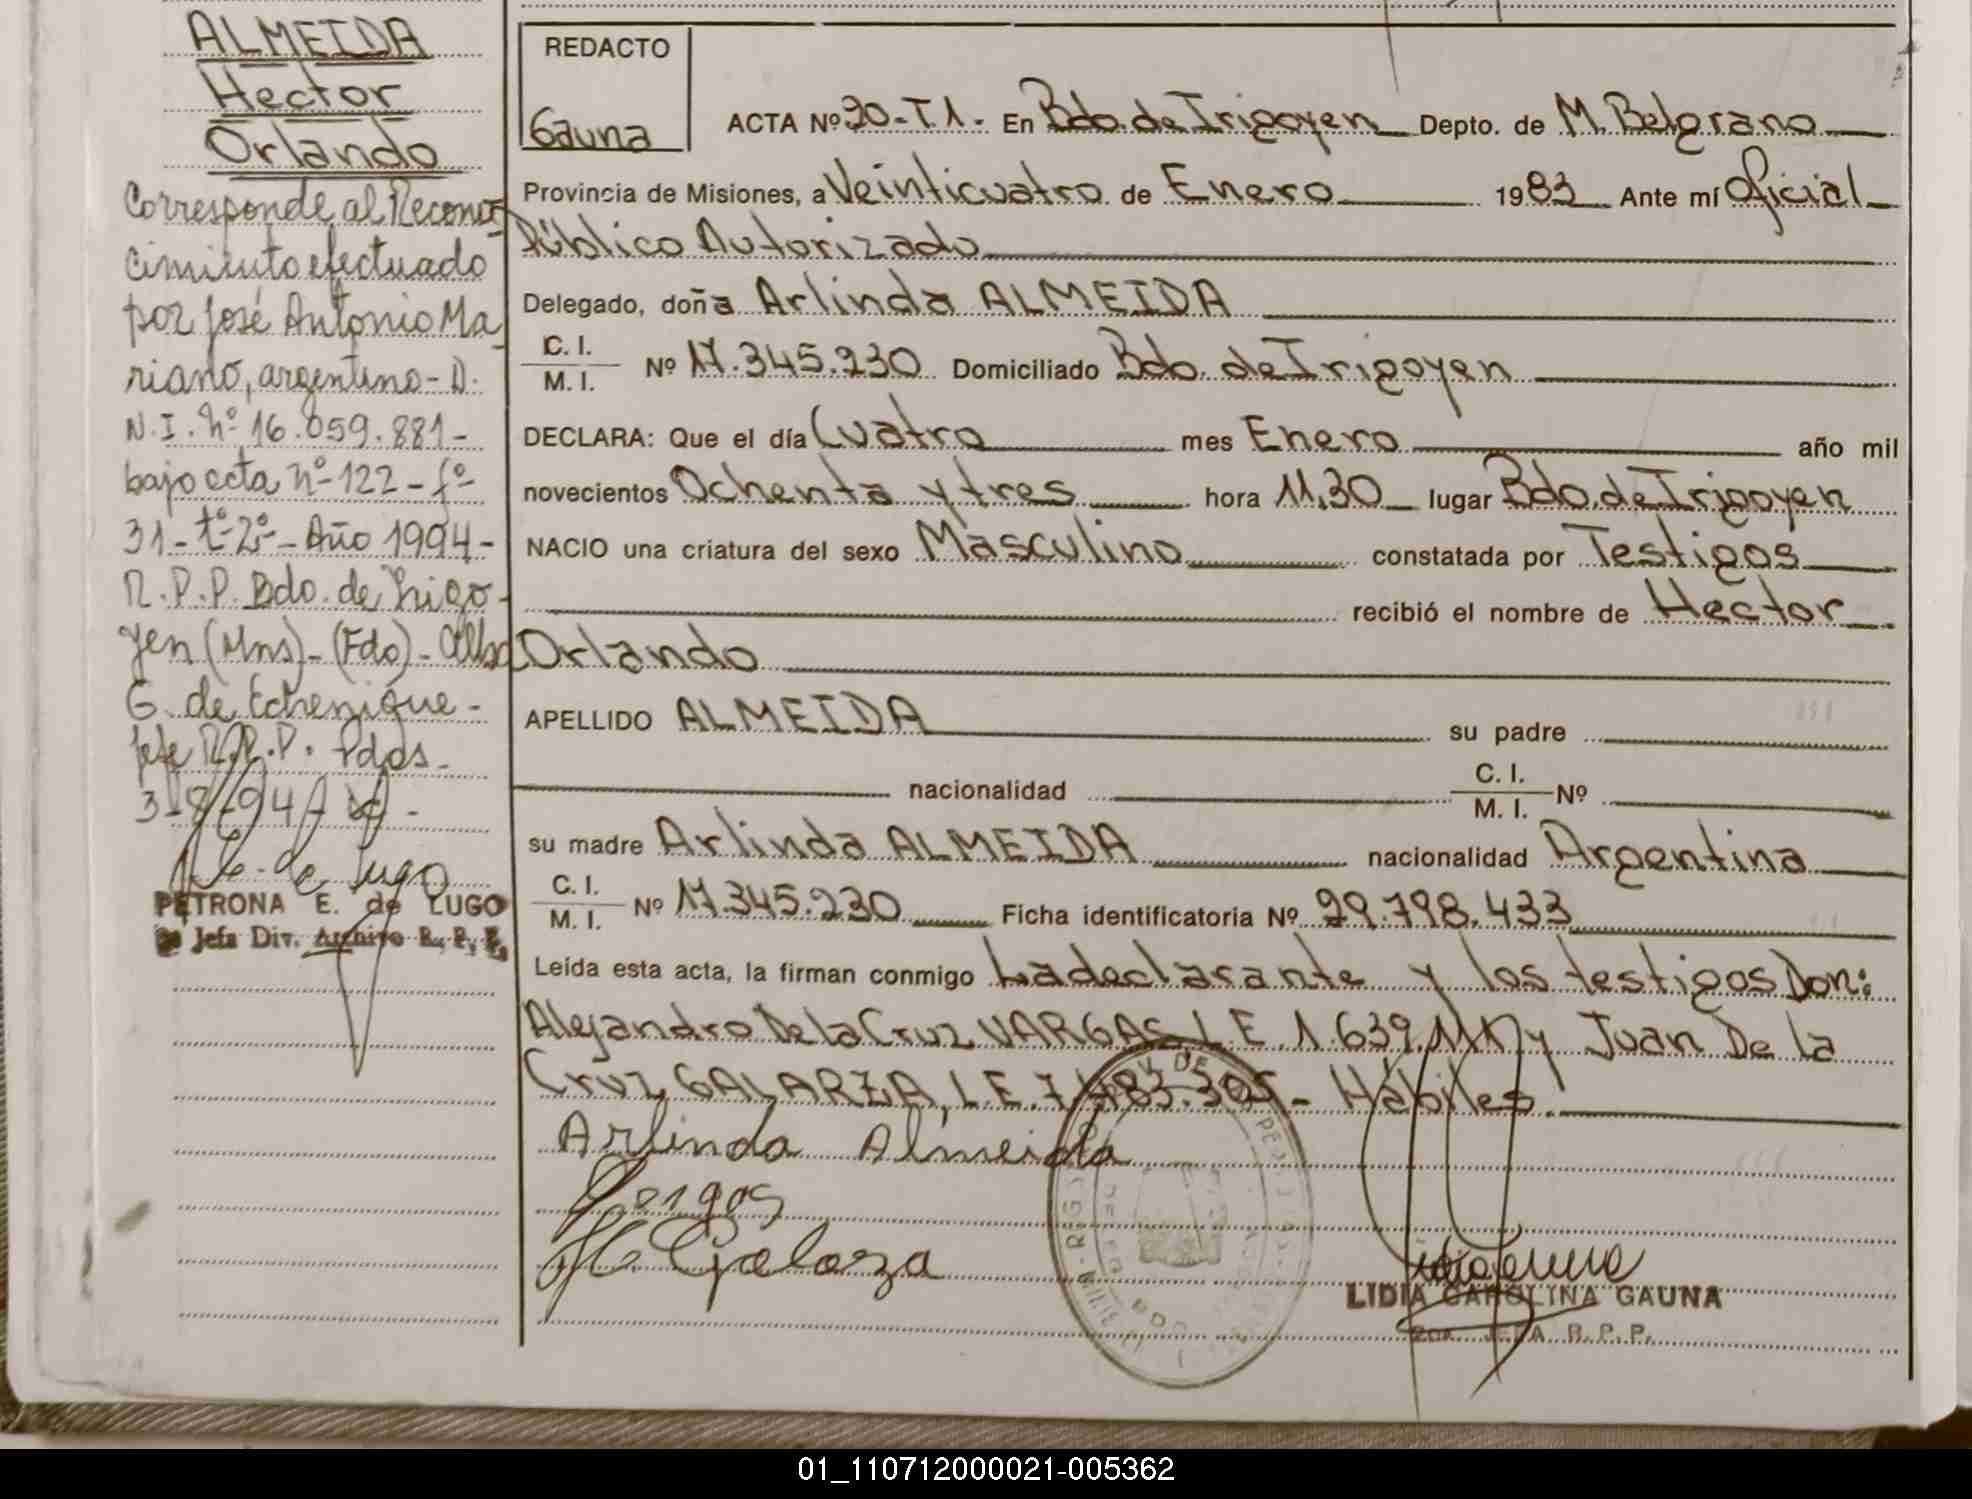 ALMEIDA
Hector
Orlando
Corresponde al Recono-
cimiento efectuado
por José Antonio Ma-
riano, argentino - D.
N.I. Nº 16.059.881 -
bajo acta nº 122 - fº
31 - tº 2º - Año 1994 -
R.P.P. Bdo. de Irigo-
yen (Mns) - (Fdo) -
G. de Echenique -
Jefe R.P.P. Pdas.
3-8-94
de Lugo
PETRONA E. de LUGO
Jefa Div. Archivo R. P. P.
REDACTO
Gauna
ACTA Nº 20-T1. En Bdo. de Irigoyen Depto. de M. Belgrano
Provincia de Misiones, a Veinticuatro de Enero 1983 Ante mí Oficial
Público Autorizado
Delegado, doña Arlinda ALMEIDA
C. I.
M. I. Nº 17.345.230 Domiciliado Bdo. de Irigoyen
DECLARA: Que el día Cuatro mes Enero año mil
novecientos Ochenta y tres hora 11,30 lugar Bdo. de Irigoyen
NACIO una criatura del sexo Masculino constatada por Testigos
recibió el nombre de Hector
Orlando
APELLIDO ALMEIDA su padre
nacionalidad C. I. M. I. Nº
su madre Arlinda ALMEIDA nacionalidad Argentina
C. I.
M. I. Nº 17.345.230 Ficha identificatoria Nº 29.798.433
Leída esta acta, la firman conmigo La declarante y los testigos Don:
Alejandro De la Cruz VARGAS L.E. 1.639. y Juan De la
Cruz GALARZA, L.E. 7.483.305 - Hábiles.
Arlinda Almeida
Galarza
LIDIA CAROLINA GAUNA
JEFA R. P. P.
01_110712000021-005362